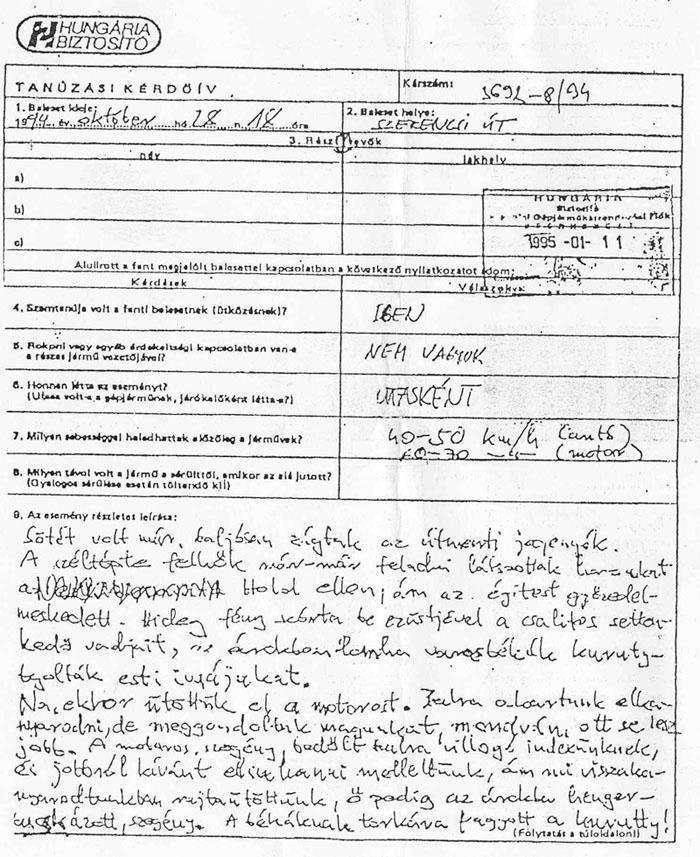 HUNGÁRIA
BIZTOSÍTÓ
TANÚZÁSI KÉRDŐÍV
Kárszám: 3692-8/94
1. Baleset ideje:
1994 év október hó 28 n. 18 óra
2. Baleset helye:
SZERENCSI ÚT
3. Résztvevők
név
lakhely
a)
b)
c)
HUNGÁRIA
Biztosító
1995 -01- 11
Alulírott a fent megjelölt balesettel kapcsolatban a következő nyilatkozatot adom:
Kérdések
Válaszok
4. Szemtanúja volt a fenti balesetnek (ütközésnek)?
IGEN
5. Rokoni vagy egyéb érdekeltségi kapcsolatban van-e
a részes jármű vezetőjével?
NEM VAGYOK
6. Honnan látta az eseményt?
(Utasa volt-e a gépjárműnek, járókelőként látta-e?)
UTASKÉNT
7. Milyen sebességgel haladhattak előzőleg a járművek?
40-50 km/h (autó)
60-70 -"- (motor)
8. Milyen távol volt a jármű a sérülttől, amikor az elé jutott?
(Gyalogos sérülése esetén töltendő ki!)
9. Az esemény részletes leírása:
Sötét volt már, baljósan zúgtak az útmenti jegenyék.
A széltépte felhők már-már feladni látszottak harcukat
a Hold ellen, ám az égitest győzedel-
meskedett. Hideg fény szórta be ezüstjével a csalitos setten-
kedő vadjait, az árokban lomha varasbékák kuruty-
tyolták esti imájukat.
Na, ekkor ütöttük el a motorost. Balra akartunk elka-
nyarodni, de meggondoltuk magunkat, mondván, ott se lesz
jobb. A motoros, szegény, bedőlt balra villogó indexünknek,
és jobbról kívánt elsuhanni mellettünk, ám mi visszaka-
nyarodtunkban rajtaütöttünk, ő pedig az árokba henger-
buckázott, szegény. A békáknak torkára fagyott a kurutty!
(Folytatás a túloldalon!)